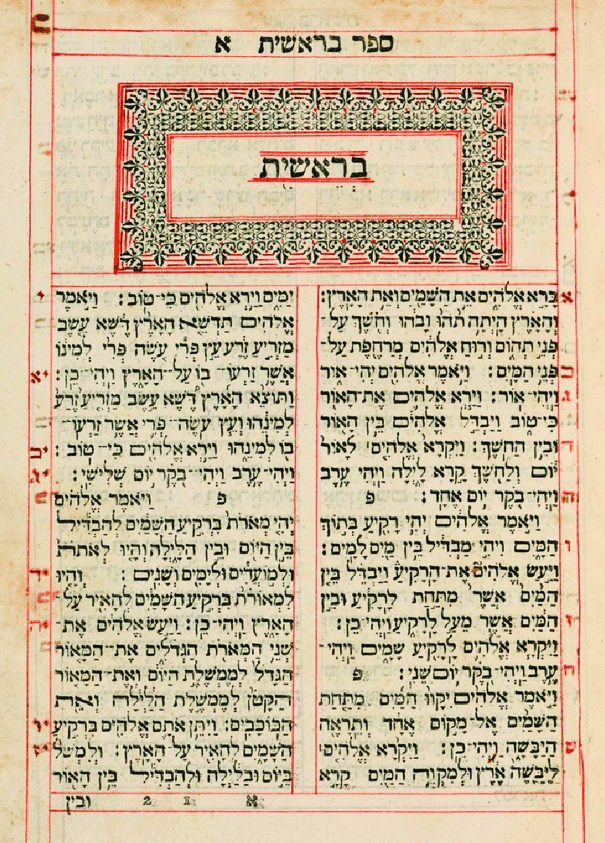 ספר בראשית א
בראשית
א ברא אלהים את השמים ואת הארץ:
והארץ היתה תהו ובהו וחשך על־
פני תהום ורוח אלהים מרחפת על־
ב פני המים: ויאמר אלהים יהי אור
ג ויהי־אור: וירא אלהים את־האור
כי־טוב ויבדל אלהים בין האור
ד ובין החשך: ויקרא אלהים לאור
יום ולחשך קרא לילה ויהי ערב
ה ויהי־בקר יום אחד: פ
ויאמר אלהים יהי רקיע בתוך
ו המים ויהי מבדיל בין מים למים:
ויעש אלהים את־הרקיע ויבדל בין
המים אשר מתחת לרקיע ובין
ז המים אשר מעל לרקיע ויהי־כן:
ויקרא אלהים לרקיע שמים ויהי־
ח ערב ויהי־בקר יום שני: פ
ויאמר אלהים יקוו המים מתחת
השמים אל־מקום אחד ותראה
ט היבשה ויהי־כן: ויקרא אלהים
ליבשה ארץ ולמקוה המים קרא
ימים וירא אלהים כי־טוב: ויאמר י
אלהים תדשא הארץ דשא עשב
מזריע זרע עץ פרי עשה פרי למינו
אשר זרעו־בו על־הארץ ויהי־כן: יא
ותוצא הארץ דשא עשב מזריע זרע
למינהו ועץ עשה־פרי אשר זרעו־
בו למינהו וירא אלהים כי־טוב: יב
ויהי־ערב ויהי־בקר יום שלישי: יג
פ ויאמר אלהים
יהי מארת ברקיע השמים להבדיל
בין היום ובין הלילה והיו לאתת
ולמועדים ולימים ושנים: והיו יד
למאורת ברקיע השמים להאיר על־
הארץ ויהי־כן: ויעש אלהים את־ יה
שני המארת הגדלים את־המאור
הגדל לממשלת היום ואת־המאור
הקטן לממשלת הלילה ואת
הכוכבים: ויתן אתם אלהים ברקיע יו
השמים להאיר על־הארץ: ולמשל
ביום ובלילה ולהבדיל בין האור
א 1 2 ובין